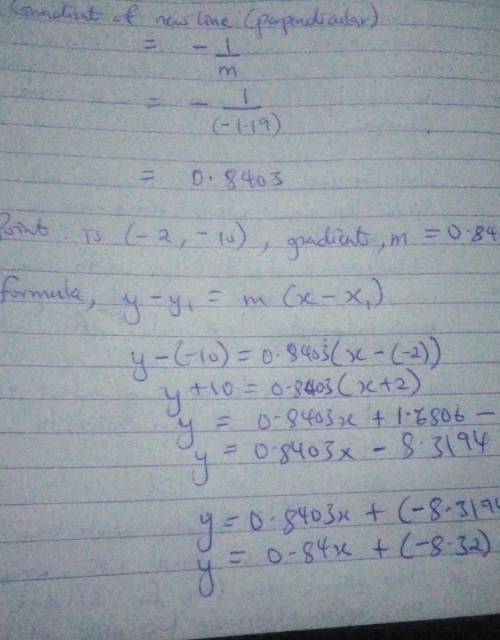 Gradient of new line (perpendicular)
= - 1/m
= - 1/(-1.19)
= 0.8403
Point is (-2, -10), gradient, m = 0.84
formula, y - y₁ = m (x - x₁)
y - (-10) = 0.8403(x - (-2))
y + 10 = 0.8403(x + 2)
y = 0.8403x + 1.6806 -
y = 0.8403x - 8.3194
y = 0.8403x + (-8.3194
y = 0.84x + (-8.32)